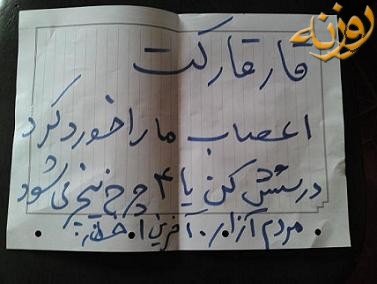 روزنه
قار قارکت
اعصاب ما را خورد کرد
درستش کن یا ۴ چرخ پنچر می شود
مردم آزار. آخرین اخطار.